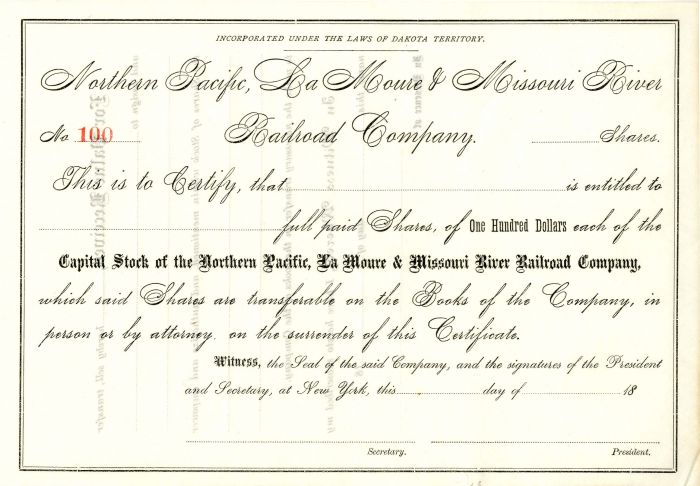 INCORPORATED UNDER THE LAWS OF DAKOTA TERRITORY.
Northern Pacific, La Moure & Missouri River
No 100 Railroad Company. Shares.
This is to Certify, that is entitled to
full paid Shares, of One Hundred Dollars each of the
Capital Stock of the Northern Pacific, La Moure & Missouri River Railroad Company,
which said Shares are transferable on the Books of the Company, in
person or by attorney, on the surrender of this Certificate.
Witness, the Seal of the said Company, and the signatures of the President
and Secretary, at New York, this day of 18
Secretary. President.